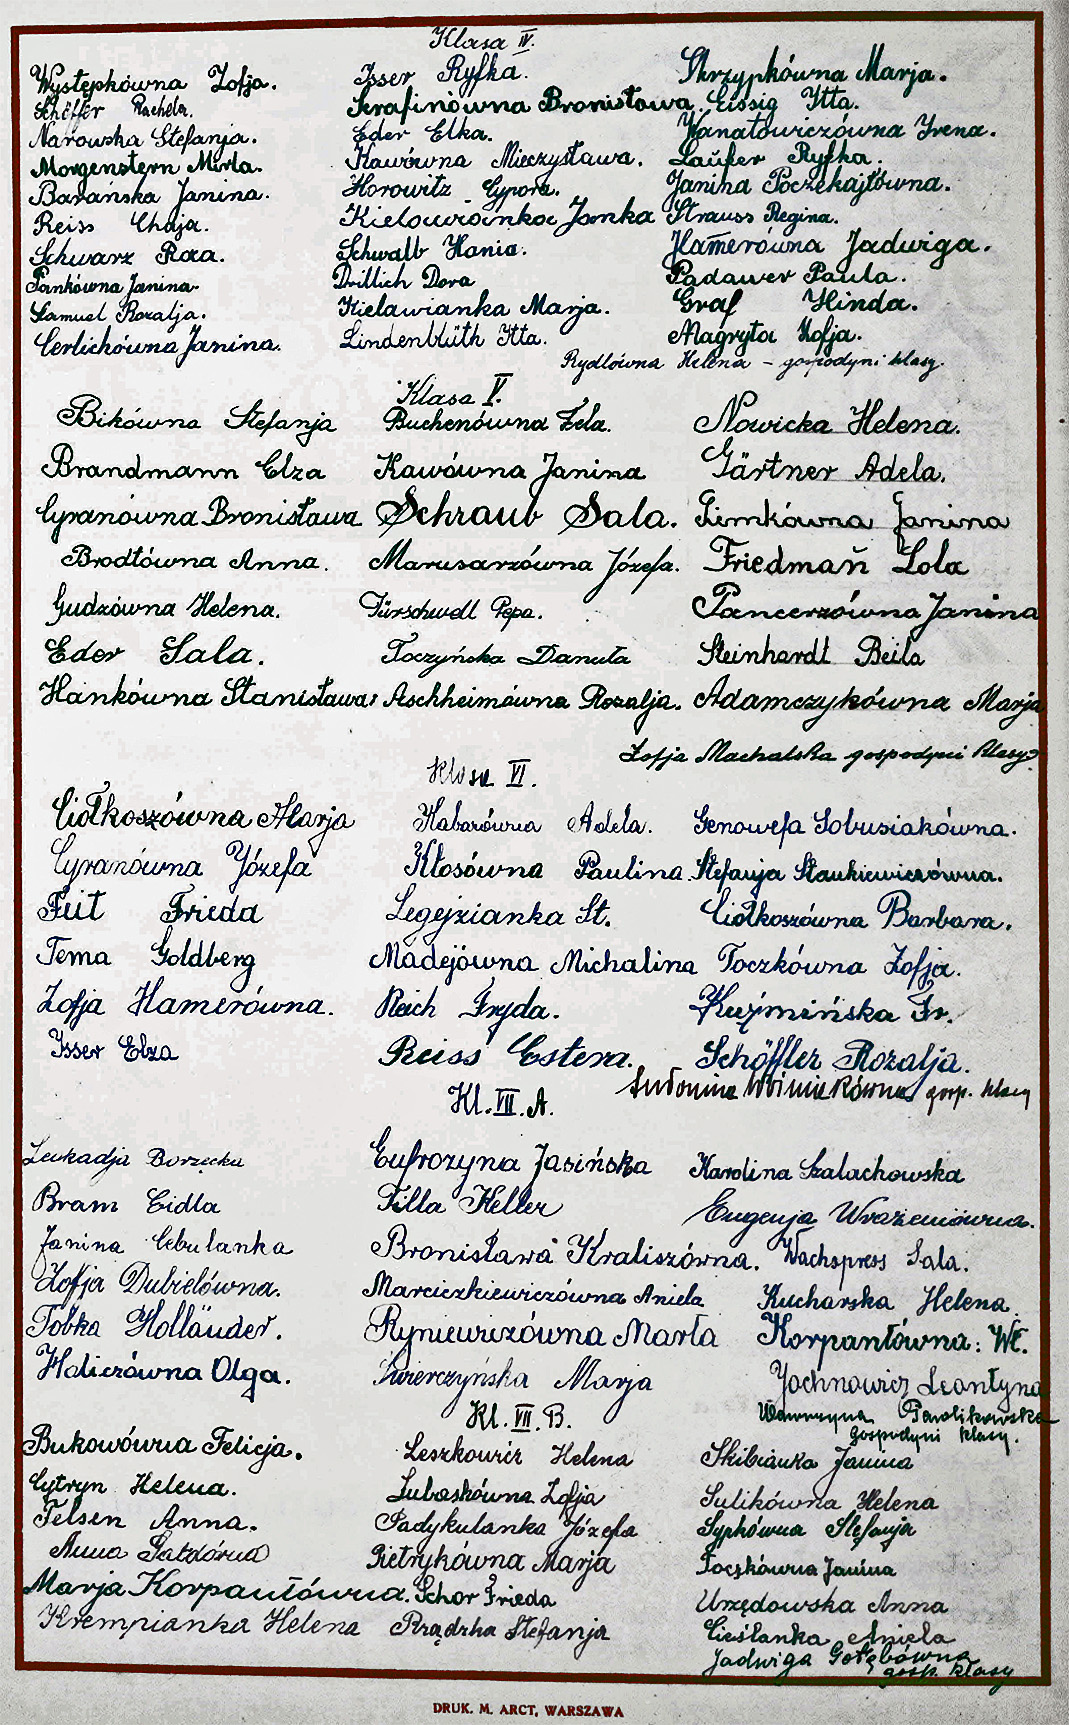 Klasa IV.
Występkówna Zofja. Isser Ryfka. Skrzypkówna Marja.
Schöffer Rachela. Serafinówna Bronisława. Eissig Itta.
Narowska Stefanja. Eder Elka. Kanatowiczówna Irena.
Morgenstern Mirla. Kawówna Mieczysława. Laufer Ryfka.
Barańska Janina. Horowitz Cypora. Janina Poczekajłówna.
Reiss Chaja. Kielowrónka Janka Strauss Regina.
Schwarz Roza. Schwalb Hania. Hamerówna Jadwiga.
Pankówna Janina. Drillich Dora Padawer Paula.
Samuel Rozalja. Kielawianka Marja. Graf Hinda.
Cerlichówna Janina. Lindenblüth Itta. Magryta Zofja.
Rydlówna Helena – gospodyni klasy.
Klasa V.
Bikówna Stefanja Buchenówna Fela. Nowicka Helena.
Brandmann Elza Kawówna Janina Gärtner Adela.
Cyranówna Bronisława Schraub Sala. Ziemkówna Janina
Brodtówna Anna. Marusarzówna Józefa. Friedmań Lola
Gudzówna Helena. Türschwell Pepa. Pancerzówna Janina
Eder Sala. Toczyńska Danuta Steinhardt Beila
Hankówna Stanisława, Aschheimówna Rozalja. Adamczykówna Marja
Zofja Machalska gospodyni klasy.
Klasa VI.
Ciołkoszówna Marja Habarówna Adela. Genowefa Sobusiakówna.
Cyranówna Józefa Kłosówna Paulina. Stefanja Stankiewiczówna.
Feit Frieda Legejzianka St. Ciołkoszówna Barbara.
Tema Goldberg Madejówna Michalina Toczkówna Zofja.
Zofja Hamerówna. Reich Fryda. Kuźmińska Fr.
Isser Elza Reiss Estera. Schöffler Rozalja.
gosp. klasy
Kl. VII. A.
Leokadja Borzęcka Eufrozyna Jasińska Karolina Szalachowska
Bram Cidla Tilla Heller Eugenja Wrażeniówna.
Janina Cebulanka Bronisława Kraliszówna. Wachspress Sala.
Zofja Dubielówna. Marciczkiewiczówna Aniela Kucharska Helena
Tobka Holländer. Ryniewiczówna Marta Korpantówna: Wł.
Holiczówna Olga. Świerczyńska Marja Jochnowicz Leontyna
Wawrzyna Pawlikowska
gospodyni klasy.
Kl. VII. B.
Bukowówna Felicja. Leszkowicz Helena Skibianka Janina
Cytryn Helena. Lubaskówna Zofja Sulikówna Helena
Felsen Anna. Padykulanka Józefa Sypkówna Stefanja
Anna Gałdówna Pietrykówna Marja Toczkówna Janina
Marja Korpantówna. Schor Frieda Urzędowska Anna
Krempianka Helena Prządzka Stefanja Cieślanka Aniela
Jadwiga Gołębówna
gosp. klasy
DRUK. M. ARCT, WARSZAWA